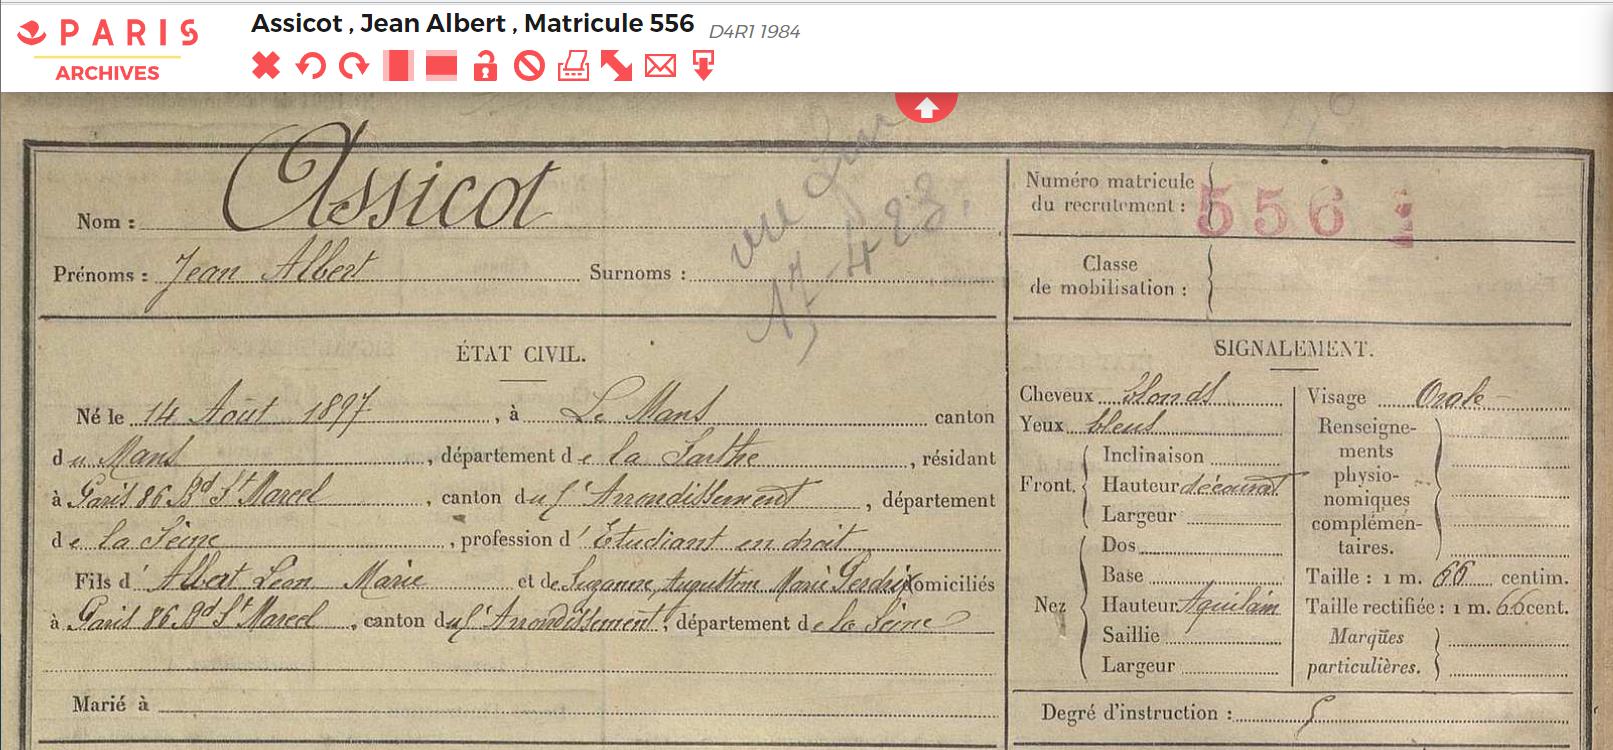 PARIS
ARCHIVES
Assicot , Jean Albert , Matricule 556 D4R1 1984
Nom : Assicot
Prénoms : Jean Albert Surnoms :
vu
Numéro matricule du recrutement : 556
Classe de mobilisation :
ÉTAT CIVIL.
Né le 14 Août 1897, à Le Mans canton
du Mans, département de la Sarthe, résidant
à Paris 86 Bd St Marcel, canton du 5e Arrondissement, département
de la Seine, profession d' Etudiant en droit
Fils d' Albert Léon Marie et de Suzanne, Augustine Marie Perdrix domiciliés
à Paris 86 Bd St Marcel, canton du 5e Arrondissement, département de la Seine
Marié à
SIGNALEMENT.
Cheveux blonds
Yeux bleus
Front.
Inclinaison
Hauteur découvert
Largeur
Nez
Dos
Base
Hauteur Aquilain
Saillie
Largeur
Visage Ovale
Renseigne-
ments
physio-
nomiques
complémen-
taires.
Taille : 1 m. 66 centim.
Taille rectifiée : 1 m. 66 cent.
Marques
particulières.
Degré d'instruction : 5